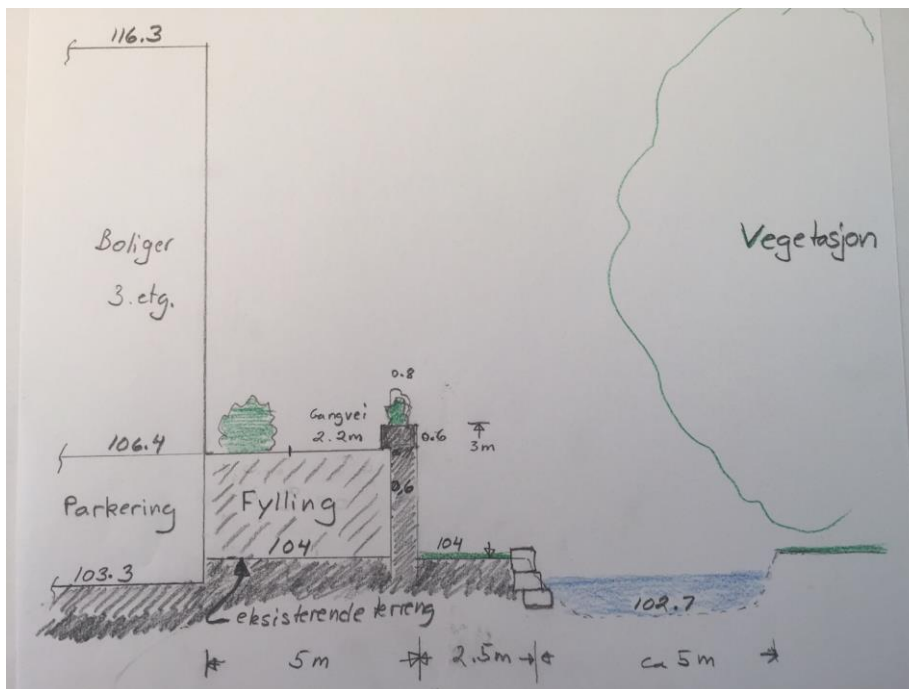 116.3
Boliger
3. etg.
Vegetasjon
0.8
Gangvei
2.2m
0.6
3m
106.4
Parkering
Fylling
0,6
104
104
103.3
eksisterende terreng
102.7
5m
2.5m
ca 5m